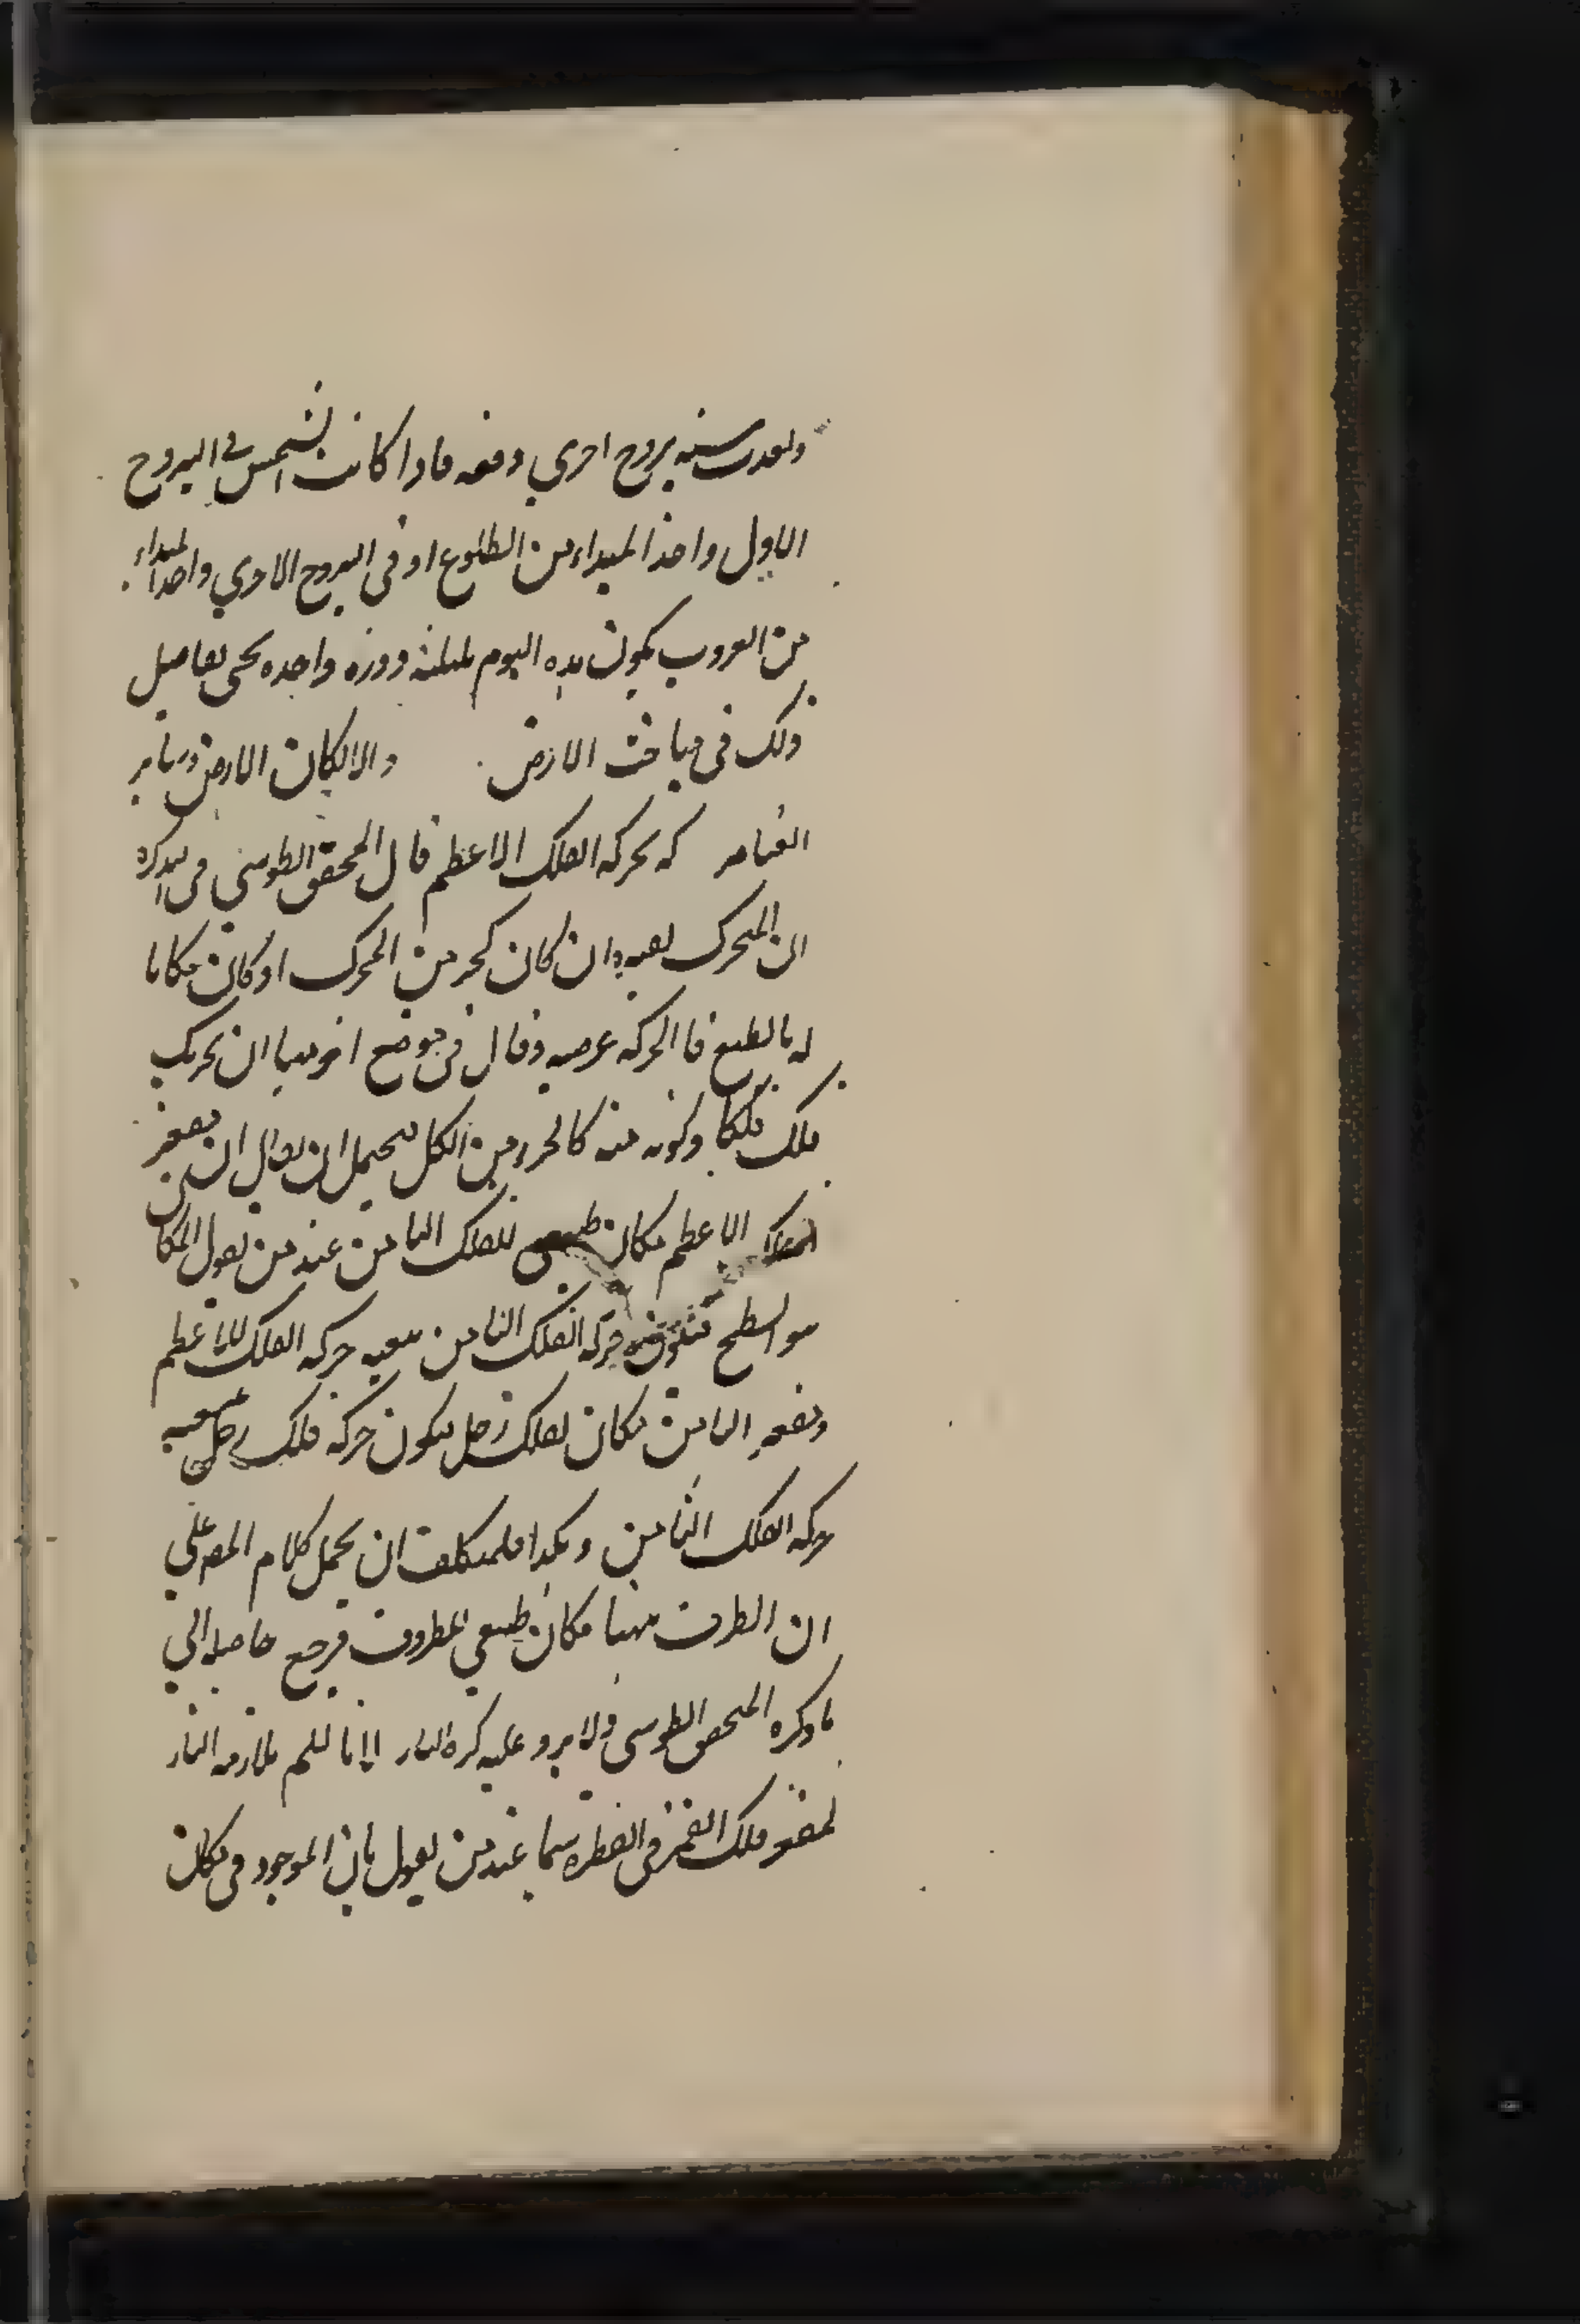 ولعدت سته بروج اخرى دفعه فاذا كانت الشمس فى البروج
الاول واخذ المبداء من الطلوع او فى البروج الاخرى واخذ المبداء
من الغروب يكون هذه اليوم بليلته دورة واحدة يحى تفاصيل
ذلك فى مباحث الارض والا لكان الارض وساير
العناصر كه بحركة الفلك الاعظم قال المحقق الطوسي فى التذكرة
ان المتحرك بغيره ان كان كجزء من المحرك او كان مكانا
له بالطبع فالحركة عرضيه وقال فى موضع اخر منها ان تحريك
فلك فلكا وكونه منه كالجزء من الكل يحتمل ان يقال ان مقعر
الفلك الاعظم مكان طبيعى للفلك الثامن عند من يقول المكان
هو السطح حركة الفلك الثامن تبعية حركة الفلك الاعظم
ومقعر الثامن مكان لفلك زحل فيكون حركة فلك زحل تبعية
حركة الفلك الثامن وهكذا فلمتكلف ان يحمل كلام المص على
ان الظرف ههنا مكان طبيعي للمظروف فرجع حاصله الى
ما ذكره المحقق الطوسى ولا يرد عليه كرة النار لانا لا نسلم ملازمة النار
لمقعر فلك القمر فى الفطرة سيما عند من يقول بان الموجود فى مكان